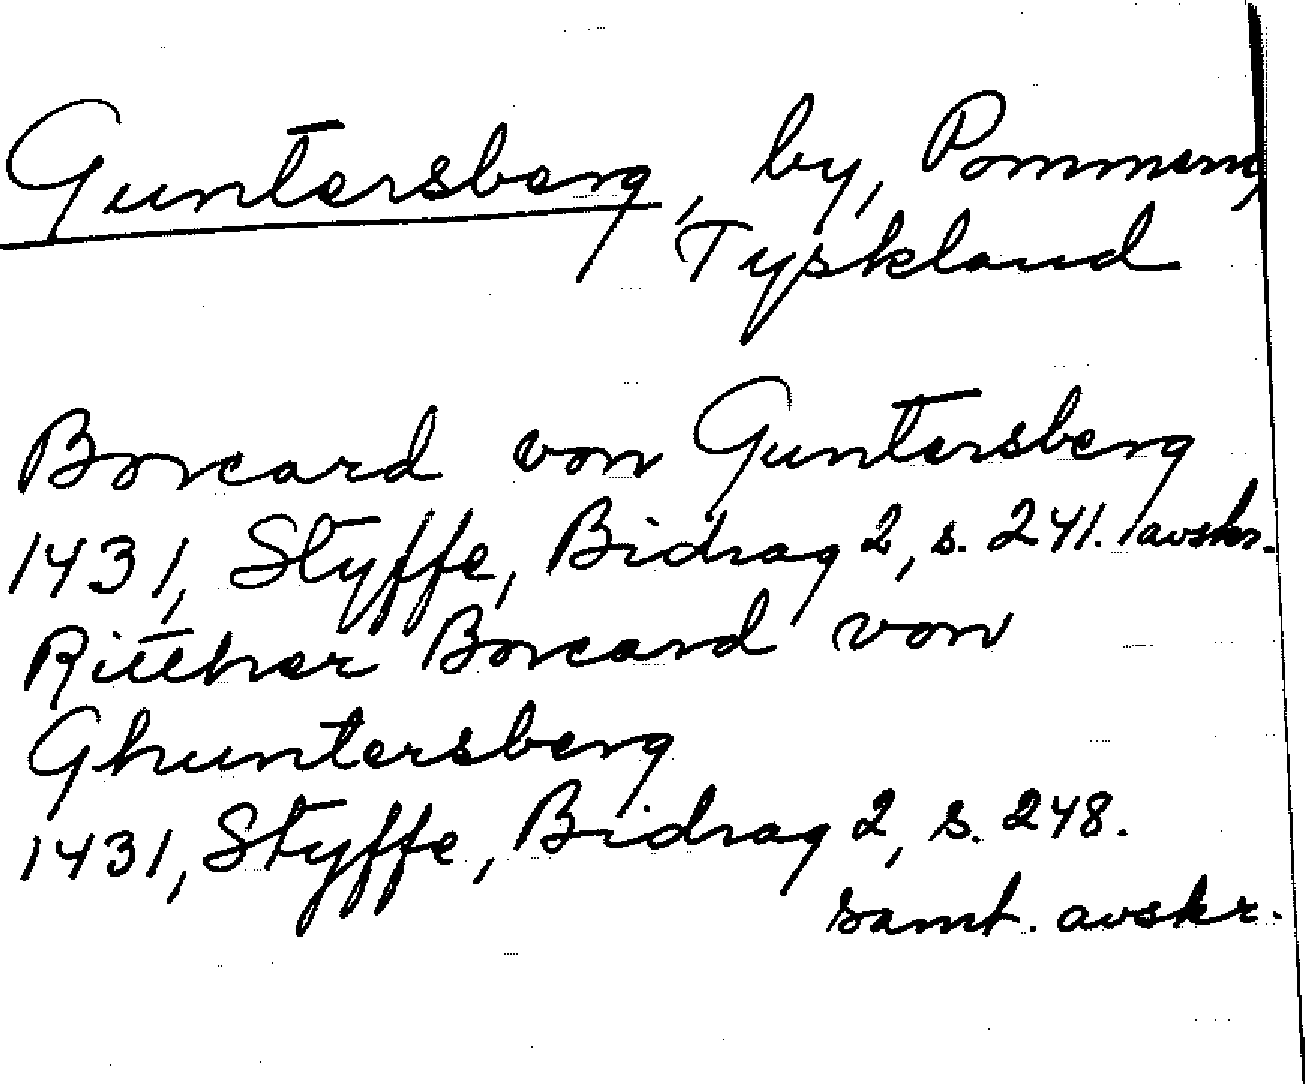 Guntersberg, by, Pommern,
Tyskland
Borcard von Guntersberg
1431, Styffe, Bidrag 2, s. 241. avskr.
Ritther Borcard von
Ghuntersberg
1431, Styffe, Bidrag 2, s. 248.
samt. avskr.